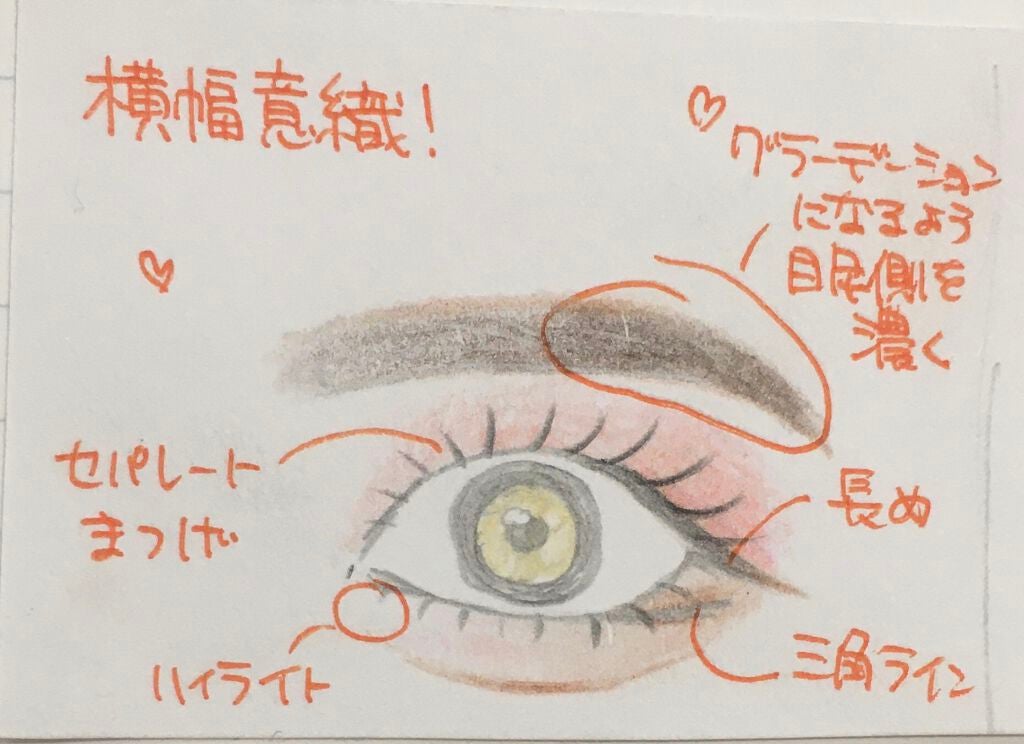 横幅意織!
グラーデーション
になるよう
目尻側を
濃く
セパレート
まつげ
長め
ハイライト
三角ライン